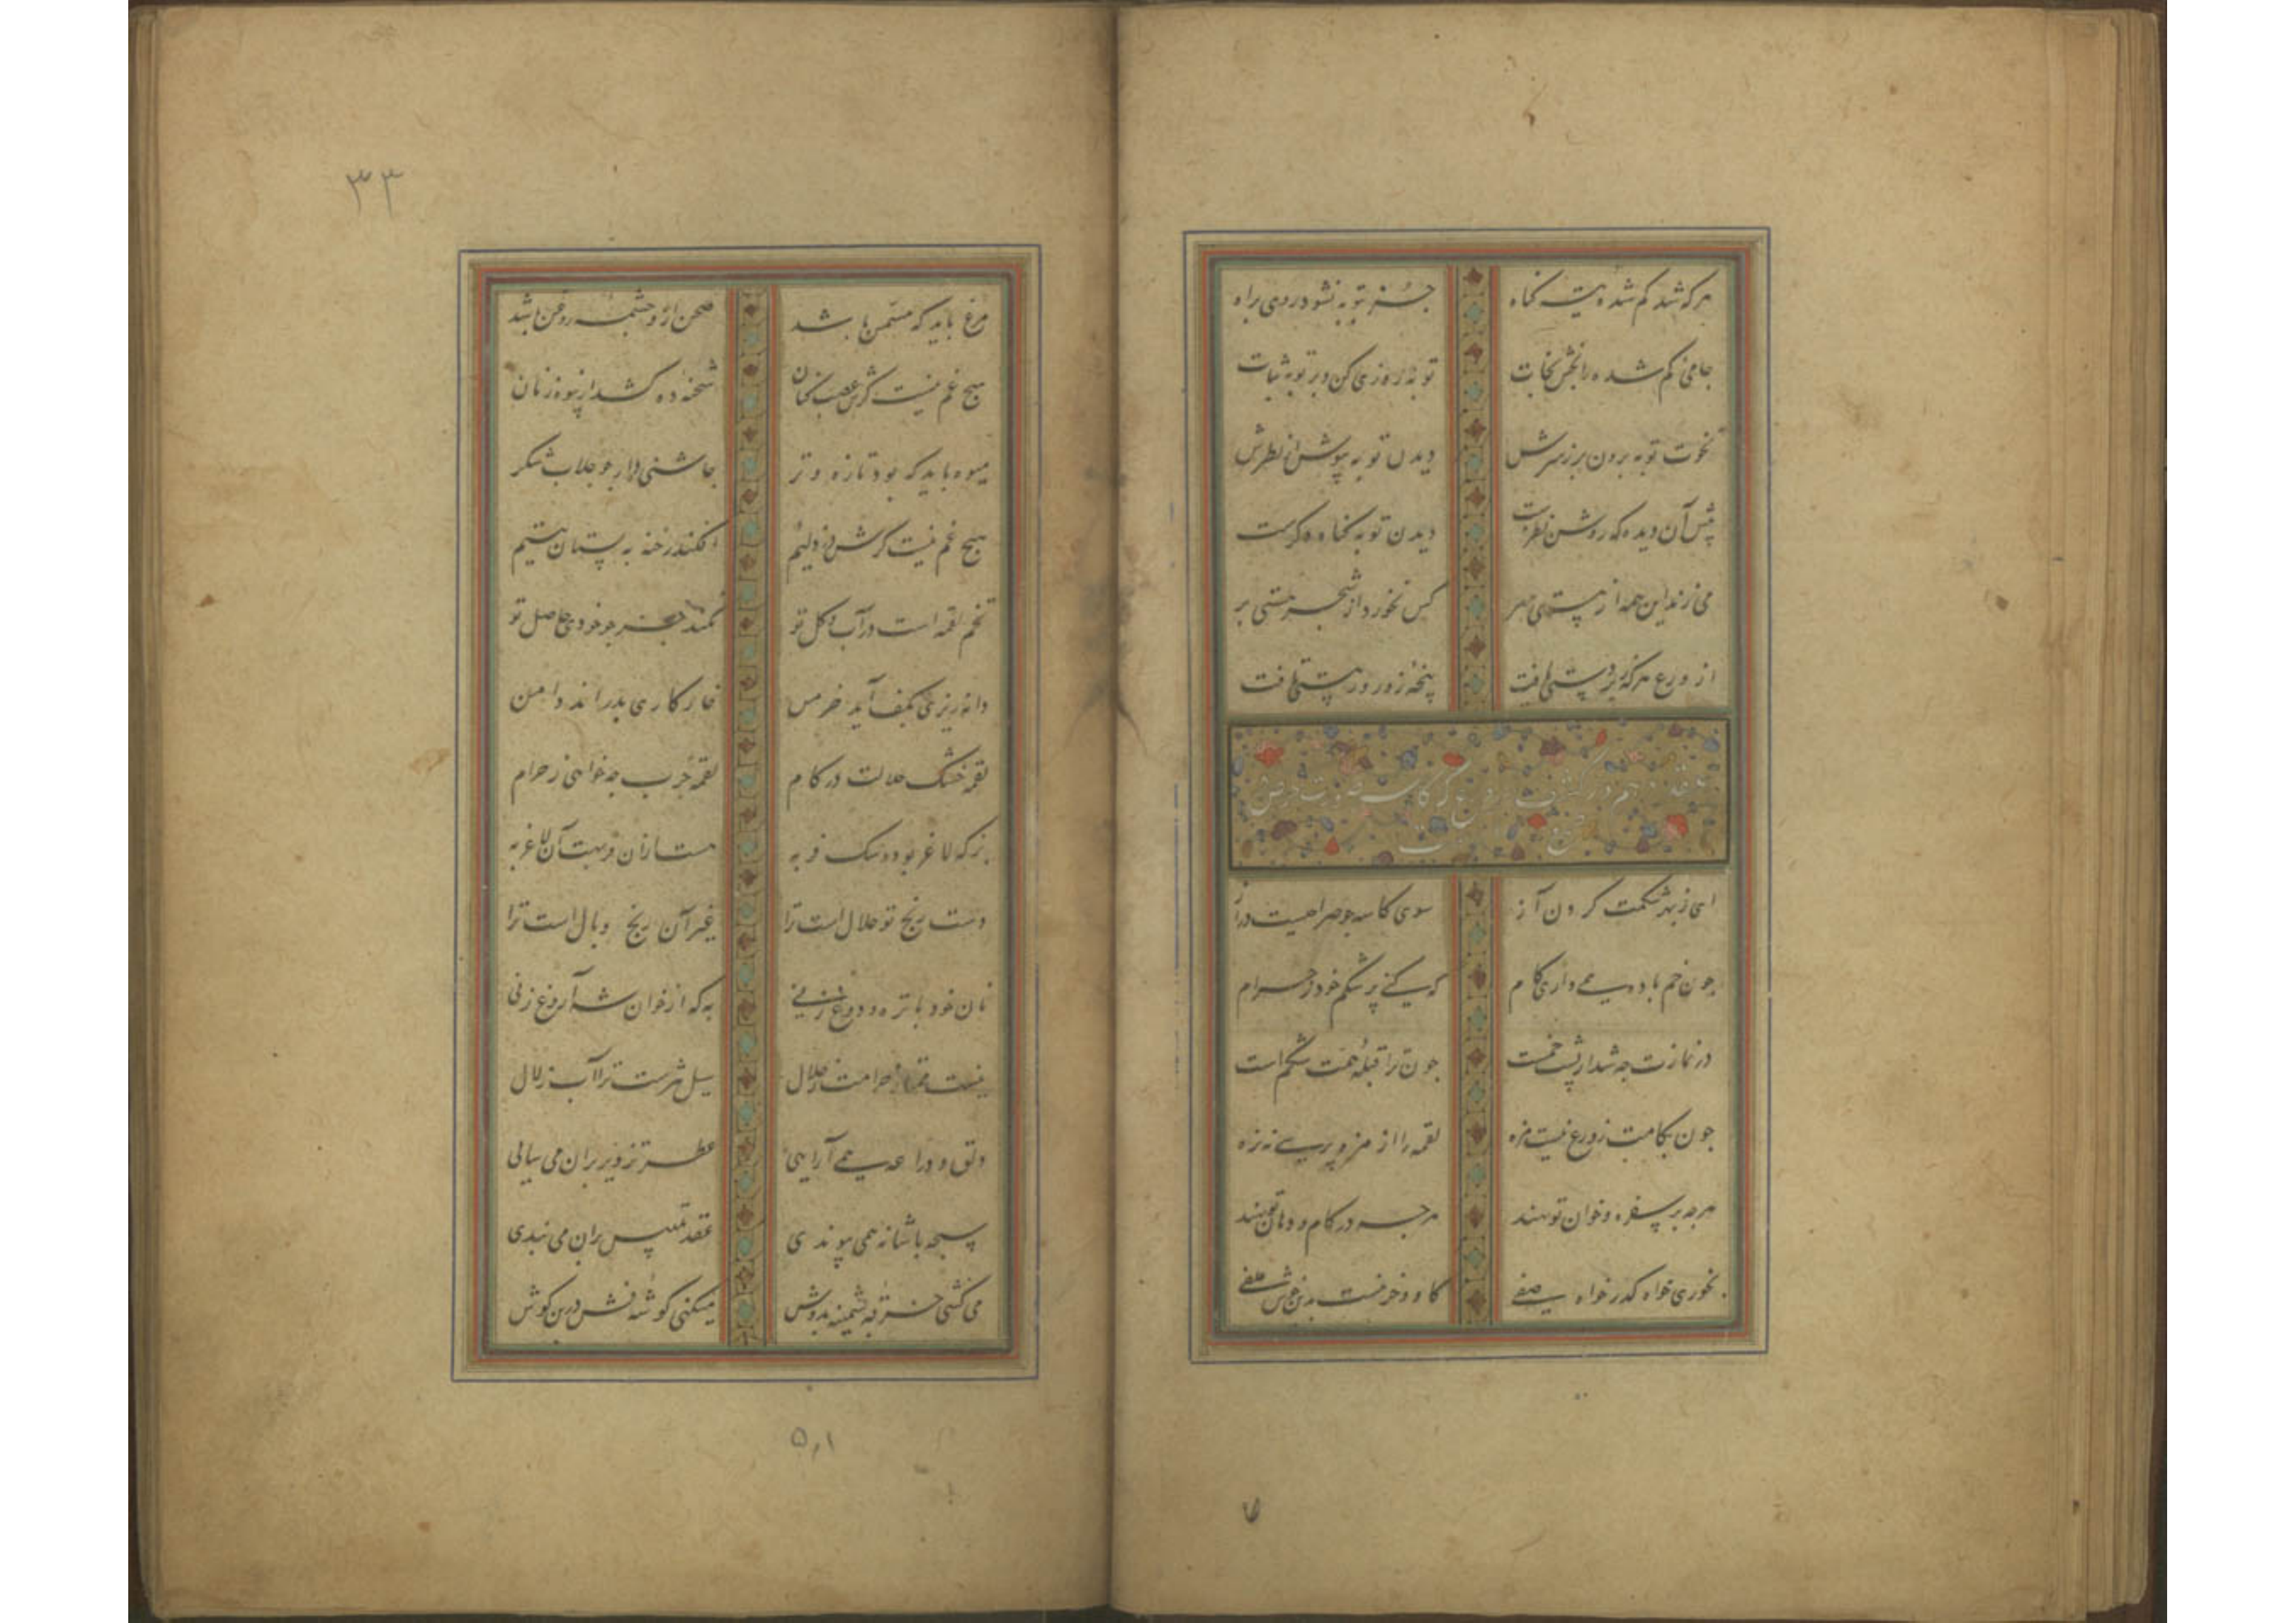 هر که شد کم شده تیه کناه
جز بتوبه نشود روی براه
جامی کم شده را بخش نجات
توبه روزی کن و بر توبه ثبات
نخوت توبه برون بر ز سرش
دیدن توبه بپوش از نظرش
پیش آن دیده که روشن نظرست
دیدن توبه کناه دکرست
می زند این همه از هستی سر
کس نخورد از شجر هستی بر
از ورع هر که زبردستی یافت
پنجه زور ورا پستی یافت
ای ز بهر شکمت کردن آز
سوی کاسه جو صراحیست دراز
جون خم باده همی داری کام
که کنی پر شکم خود ز حرام
در نمازت جه شد ار پشت خمست
جون ترا قبله همت شکم است
جون بکامت ز ورع نیست مزه
لقمه را از مزه پرسی نه ز زه
هر جه بر سفره و خوان تو نهند
هر جه در کام و دهان تو نهند
بخوری خواه کدر خواه صفی
کاو و خر نیست بدین خوش علفی
۳۳
مرغ باید که مسمن باشد
صحن ازو جشمه روغن باشد
هیج غم نیست کرش غصب کنان
شحنه ده کشد از بیوه زنان
میوه باید که بود تازه و تر
جاشنی دار جو جلاب شکر
هیج غم نیست کرش دزد لئیم
افکند رخنه به بستان یتیم
تخم لقمه است در آب و کل تو
نکند جز بر خود حاصل تو
دانه ریزی بکف آید خرمن
خار کاری بدراند دامن
لقمه خشک حلالت در کام
لقمه جرب جه خواهی ز حرام
بز که لاغر بود و سک فربه
هست ازان فربهت آن لاغر به
دست رنج تو حلال است ترا
غیر آن رنج و بال است ترا
نان خود با تره و دوغ زنی
به که از خوان شه آروغ زنی
نیست ممتاز حرامت ز حلال
سیل شرست ترا آب زلال
دلق و دراعه همی آرایی
عطر تزویر بران می سایی
سبحه با شانه همی پیوندی
عقد تلبیس بران می بندی
می کشی خرقه پشمینه بدوش
میکنی کوشه فش در بن کوش
۵٫۱